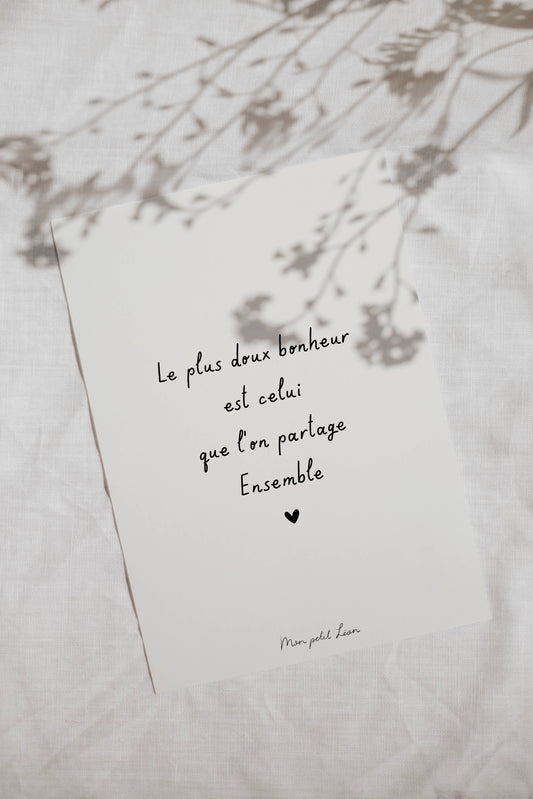 Le plus doux bonheur
est celui
que l'on partage
Ensemble
Mon petit Léon